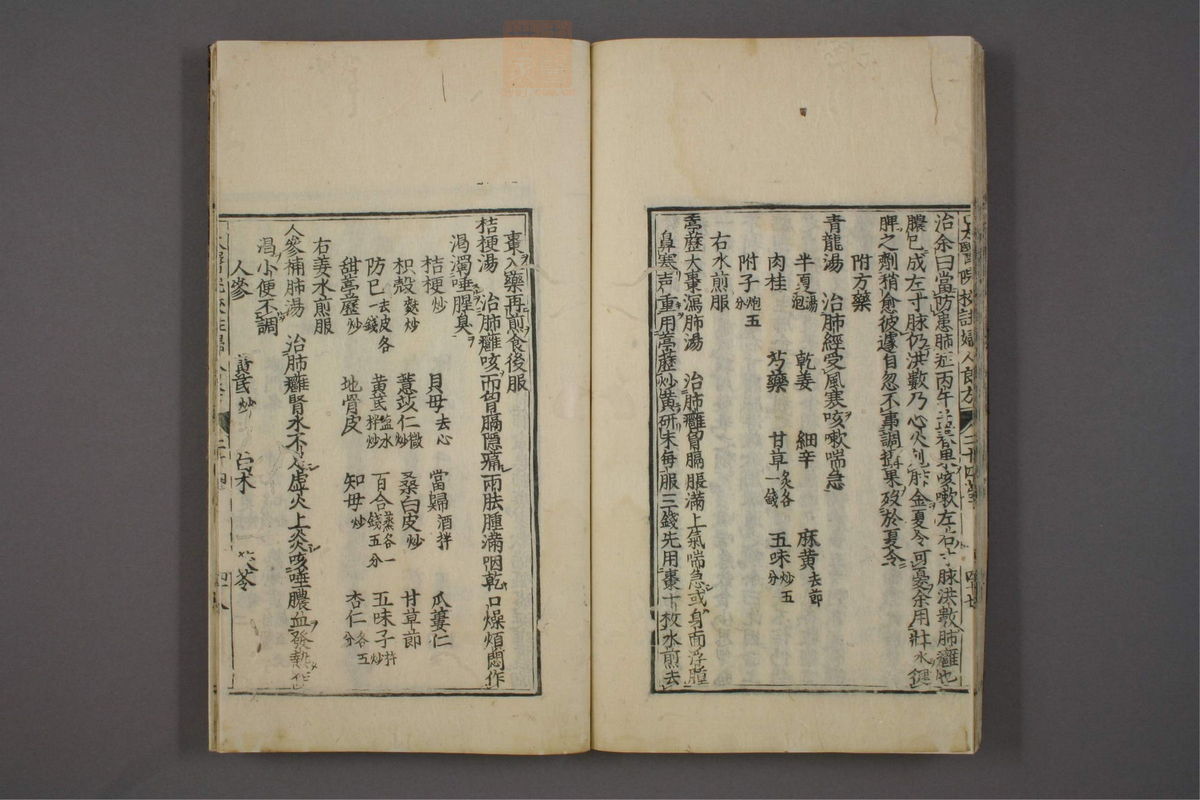 太醫院校註婦人良方 二十四卷 四十七
治余曰當防患肺症丙午孟春果咳嗽左右寸脉洪數肺癰也
膿已成左寸脉仍洪數乃心火剋肺金夏令可憂余用壯水健
脾之劑稍愈彼遽自忽不事調攝果歿於夏令
附方藥
青龍湯 治肺經受風寒咳嗽喘急
半夏湯泡 乾姜 細辛 麻黄去節
肉桂 芍藥 甘草炙各一錢 五味炒五分
附子炮五分
右水煎服
葶藶大棗瀉肺湯 治肺癰胷膈脹滿上氣喘急或身面浮腫
鼻塞声重用葶藶炒黄研末每服三錢先用棗十枚水煎去
棗入藥再煎食後服
桔梗湯 治肺癰咳而胷膈隠痛兩胠腫滿咽乾口燥煩悶作
渴濁唾腥臭
桔梗炒 貝母去心 當歸酒拌 瓜蔞仁
枳殻麩炒 薏苡仁微炒 桑白皮炒 甘草節
防已去皮各一錢 黄芪盐水拌炒 百合蒸各一錢五分 五味子杵炒
甜葶藶炒 地骨皮 知母炒 杏仁各五分
右姜水煎服
人參補肺湯 治肺癰腎水不足虚火上炎咳唾膿血發熱作
渴小便不調
人參 黄芪炒 白术 茯苓